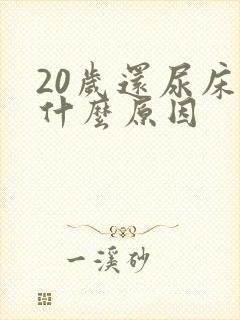 20歲還尿床
什麼原因
一溪砂